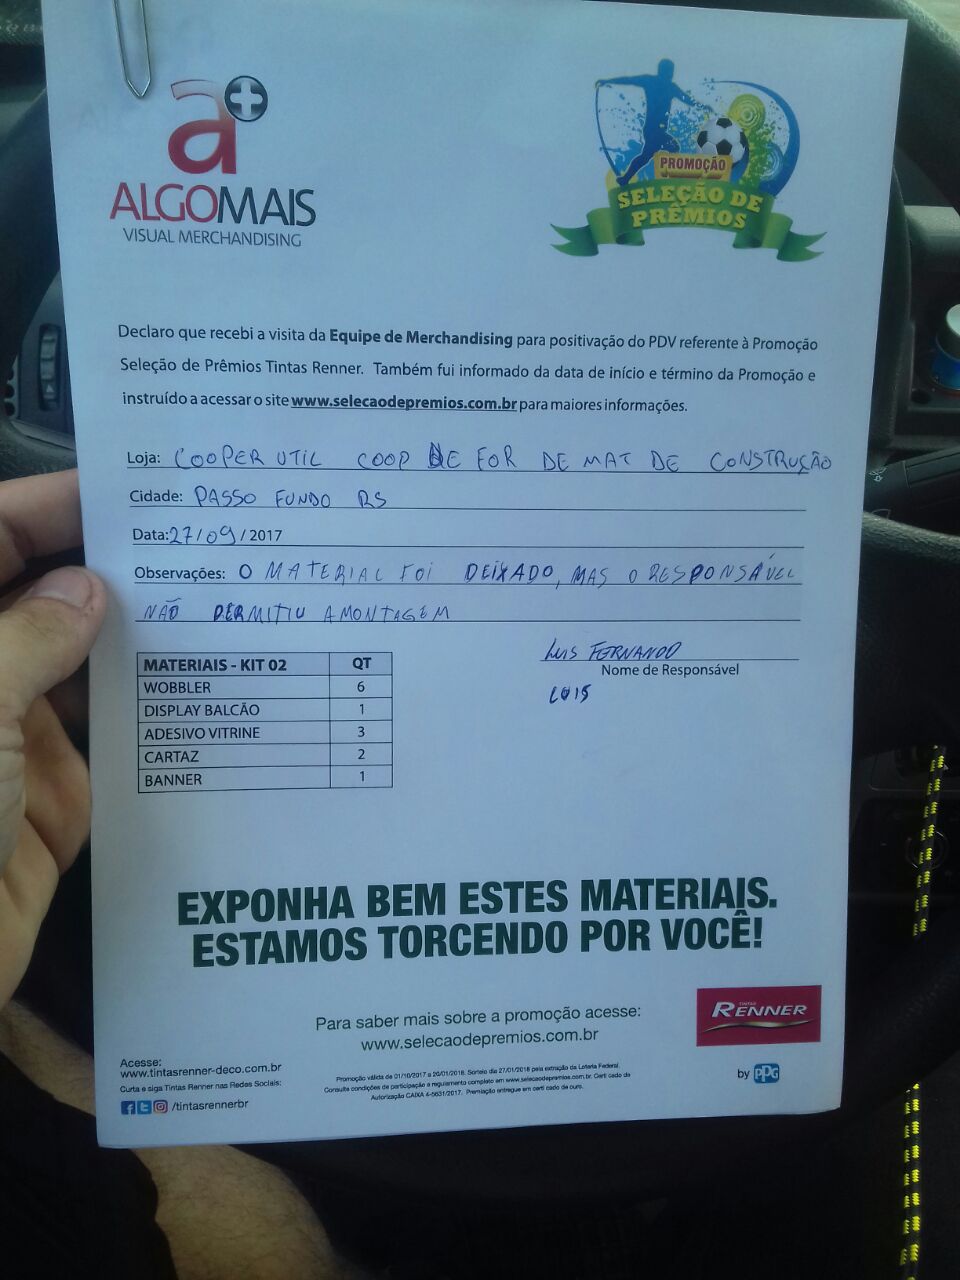 a+
ALGOMAIS
VISUAL MERCHANDISING
PROMOÇÃO
SELEÇÃO DE
PRÊMIOS
Declaro que recebi a visita da Equipe de Merchandising para positivação do PDV referente à Promoção
Seleção de Prêmios Tintas Renner. Também fui informado da data de início e término da Promoção e
instruído a acessar o site www.selecaodepremios.com.br para maiores informações.
Loja: COOPER UTIL COOP DE FOR DE MAT DE CONSTRUÇÃO
Cidade: PASSO FUNDO RS
Data: 27/09/2017
Observações: O MATERIAL FOI DEIXADO, MAS O RESPONSÁVEL
NÃO PERMITIU A MONTAGEM
LUIS FERNANDO
Nome de Responsável
LUIS
MATERIAIS - KIT 02 QT
WOBBLER 6
DISPLAY BALCÃO 1
ADESIVO VITRINE 3
CARTAZ 2
BANNER 1
EXPONHA BEM ESTES MATERIAIS.
ESTAMOS TORCENDO POR VOCÊ!
Para saber mais sobre a promoção acesse:
www.selecaodepremios.com.br
TINTAS
RENNER
by PPG
Acesse:
www.tintasrenner-deco.com.br
Curta e siga Tintas Renner nas Redes Sociais:
/tintasrennerbr
Promoção válida de 01/10/2017 a 20/01/2018. Sorteio dia 27/01/2018 pela extração da Loteria Federal.
Consulte condições de participação e regulamento completo em www.selecaodepremios.com.br. Certi cado de
Autorização CAIXA 4-5631/2017. Premiação entregue em certi cado de ouro.